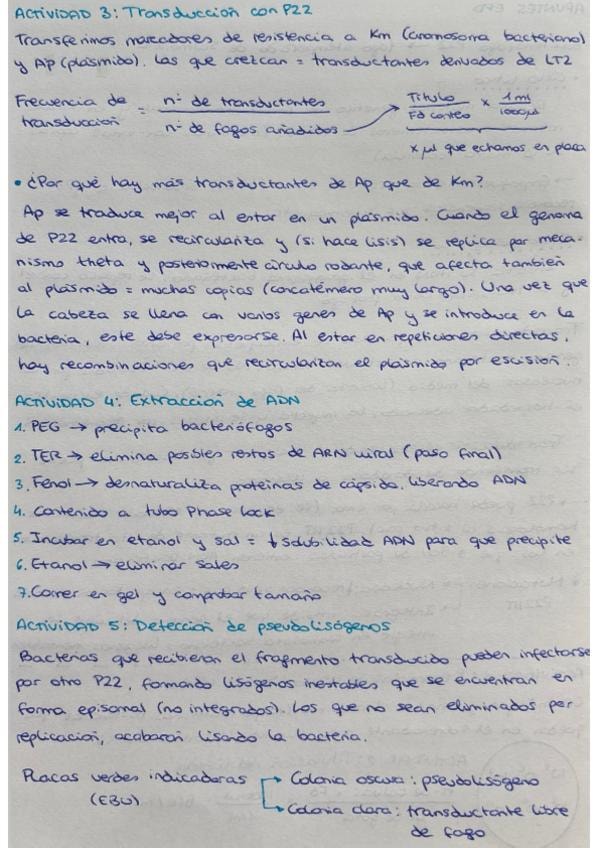 ACTIVIDAD 3: Transducción con P22
Transferimos marcadores de resistencia a Km (cromosoma bacteriano)
y Ap (plásmido). Las que crezcan = transductantes derivados de LT2
Frecuencia de transducción = nº de transductantes / nº de fagos añadidos → Título / Fd conteo × 1 ml / 1000 µl
x µl que echamos en placa
• ¿Por qué hay más transductantes de Ap que de Km?
Ap se traduce mejor al estar en un plásmido. Cuando el genoma
de P22 entra, se recirculariza y (si hace lisis) se replica por meca-
nismo theta y posteriormente círculo rodante, que afecta también
al plásmido = muchas copias (concatémero muy largo). Una vez que
la cabeza se llena con varios genes de Ap y se introduce en la
bacteria, este debe expresarse. Al estar en repeticiones directas,
hay recombinaciones que recircularizan el plásmido por escisión.
ACTIVIDAD 4: Extracción de ADN
1. PEG → precipita bacteriófagos
2. TER → elimina posibles restos de ARN viral (paso final)
3. Fenol → desnaturaliza proteínas de cápsida, liberando ADN
4. Contenido a tubo Phase lock
5. Incubar en etanol y sal = ↓ solubilidad ADN para que precipite
6. Etanol → eliminar sales
7. Correr en gel y comprobar tamaño
ACTIVIDAD 5: Detección de pseudolisógenos
Bacterias que recibieron el fragmento transducido pueden infectarse
por otro P22, formando lisógenos inestables que se encuentran en
forma episomal (no integrados). Los que no sean eliminados por
replicación, acabarán lisando la bacteria.
Placas verdes indicadoras → Colonia oscura: pseudolisógeno
(EBU) → Colonia clara: transductante libre
de fago